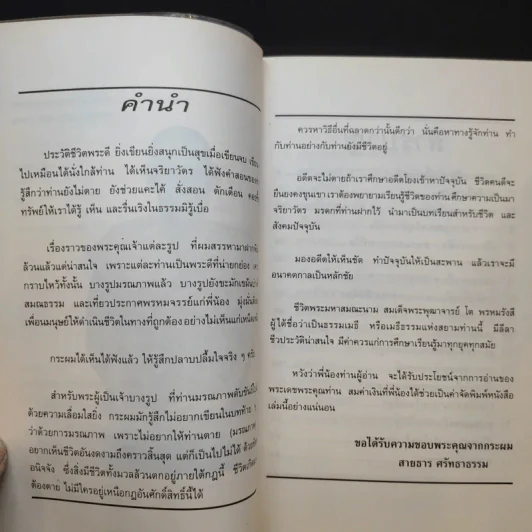 คำนำ
ประวัติชีวิตพระดี ยิ่งเขียนยิ่งสนุกเป็นสุขเมื่อเขียนจบ เขียน
ไปเหมือนได้นั่งใกล้ท่าน ได้เห็นจริยาวัตร ได้ฟังคำสอนของ
รู้สึกว่าท่านยังไม่ตาย ยังช่วยแคะได้ สั่งสอน ตักเตือน คอย
ทรัพย์ให้เราได้รู้ เห็น และรื่นเริงในธรรมมิรู้เบื่อ
เรื่องราวของพระคุณเจ้าแต่ละรูป ที่ผมสรรหามาฝาก
ล้วนแล้วแต่น่าสนใจ เพราะแต่ละท่านเป็นพระดีที่น่ายกย่อง
กราบไหว้ทั้งนั้น บางรูปมรณภาพแล้ว บางรูปยังขะมักเขม้น
สมณธรรม และเที่ยวประกาศพรหมจรรย์แก่พี่น้อง มุ่งมั่น
เพื่อนมนุษย์ให้ดำเนินชีวิตในทางที่ถูกต้อง อย่างไม่เห็นแก่เหน็ด
กระผมได้เห็นได้ฟังแล้ว ให้รู้สึกปลาบปลื้มใจจริง ๆ ครับ
สำหรับพระผู้เป็นเจ้าบางรูป ที่ท่านมรณภาพดับขันธ์
ด้วยความเลื่อมใสยิ่ง กระผมมักรู้สึกไม่อยากเขียนในบทท้าย
ว่าด้วยการมรณภาพ เพราะไม่อยากให้ท่านตาย (มรณภาพ)
อยากเห็นชีวิตอันงดงามถึงคราวสิ้นสุด แต่ก็เป็นไปไม่ได้ ด้วย
อนิจจัง ซึ่งสิ่งมีชีวิตทั้งมวลล้วนตกอยู่ภายใต้กฎนี้ ชีวิต
ต้องตาย ไม่มีใครอยู่เหนือกฎอันศักดิ์สิทธิ์นี้ได้
ควรหาวิธีอื่นที่ฉลาดกว่านั้นดีกว่า นั่นคือหาทางรู้จักท่าน ทำ
กับท่านอย่างกับท่านยังมีชีวิตอยู่
อดีตจะไม่ตายถ้าเราศึกษาอดีตโยงเข้าหาปัจจุบัน ชีวิตคนดีจะ
ยืนยงคงชุบเขา เราต้องพยายามเรียนรู้ชีวิตของท่านศึกษาความเป็นมา
จริยาวัตร มรดกที่ท่านฝากไว้ นำมาเป็นบทเรียนสำหรับชีวิต และ
สังคมปัจจุบัน
มองอดีตให้เห็นชัด ทำปัจจุบันให้เป็นสะพาน แล้วเราจะมี
อนาคตกาลเป็นหลักชัย
ชีวิตพระมหาสมณะนาม สมเด็จพระพุฒาจารย์ โต พรหมรังสี
ผู้ได้ชื่อว่าเป็นธรรมเมธี หรือเมธีธรรมแห่งสยามท่านนี้ มีลีลา
ชีวประวัติน่าสนใจ มีค่าควรแก่การศึกษาเรียนรู้มาทุกยุคทุกสมัย
หวังว่าพี่น้องท่านผู้อ่าน จะได้รับประโยชน์จากการอ่านของ
พระเดชพระคุณท่าน สมค่าเงินที่พี่น้องได้ช่วยเป็นค่าจัดพิมพ์หนังสือ
เล่มนี้อย่างแน่นอน
ขอได้รับความขอบพระคุณจากกระผม
สายธาร ศรัทธาธรรม